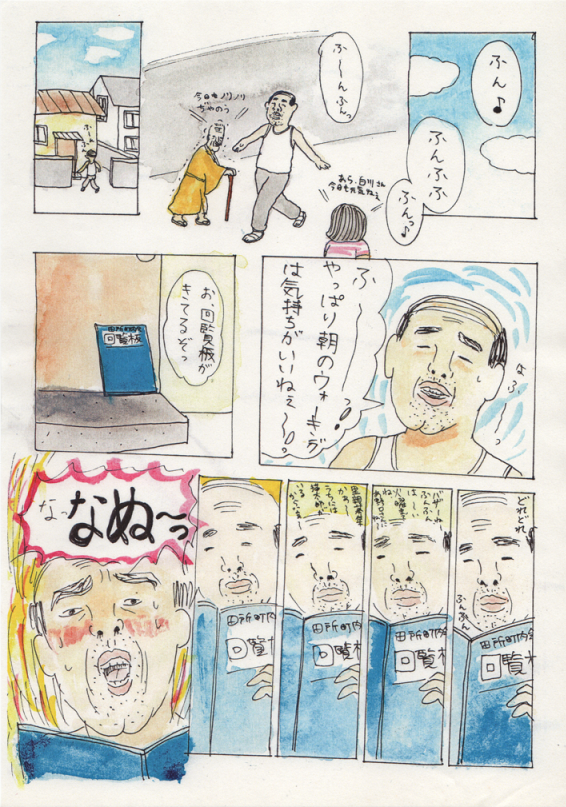 ふん♪
ふんふふ
ふんっ♪
ふ〜んふんっ
あら、白川さん
今日も元気ねぇ
今日もノリノリ
じゃのう
ふ〜〜っ!!
やっぱり朝のウォーキング
は気持ちがいいねぇ〜
お、回覧板が
きてるぞっ
回覧板
どれどれ
ふんふん
田所町内会
回覧板
バザーね
ふんふん
田所町内
回覧板
里親募集
かぁ〜
うちには
田所町内
回覧板
田所町内
回覧板
なっ
なぬ〜っ